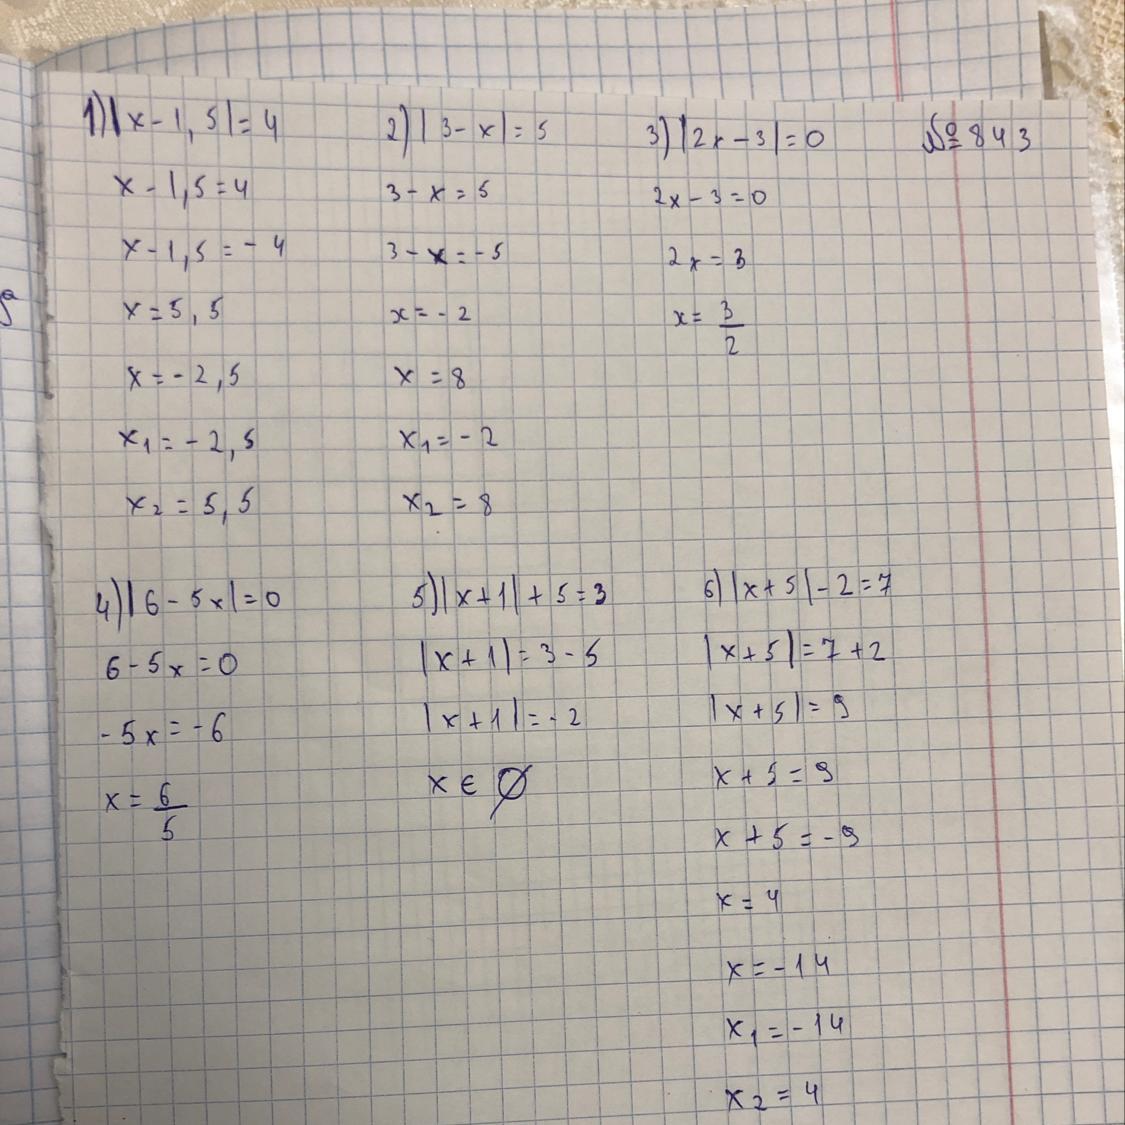 №843
1) |x - 1,5| = 4
x - 1,5 = 4
x - 1,5 = - 4
x = 5,5
x = - 2,5
x₁ = - 2,5
x₂ = 5,5
2) |3 - x| = 5
3 - x = 5
3 - x = - 5
x = - 2
x = 8
x₁ = - 2
x₂ = 8
3) |2x - 3| = 0
2x - 3 = 0
2x = 3
x = 3/2
4) |6 - 5x| = 0
6 - 5x = 0
- 5x = - 6
x = 6/5
5) |x + 1| + 5 = 3
|x + 1| = 3 - 5
|x + 1| = - 2
x ∈ ∅
6) |x + 5| - 2 = 7
|x + 5| = 7 + 2
|x + 5| = 9
x + 5 = 9
x + 5 = - 9
x = 4
x = - 14
x₁ = - 14
x₂ = 4